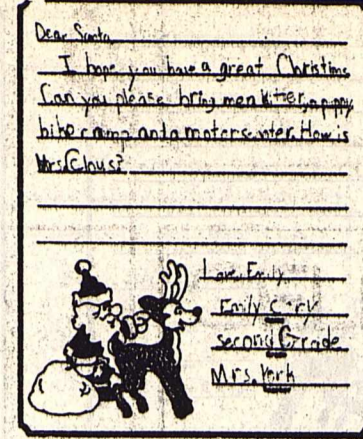 Dear Santa
I hope you have a great Christims
Can you please bring me a kitten, a puppy,
bike ramp and a moter scooter. How is
Mrs. Claus?
Love Emily
Emily
second Grade
Mrs. Verh